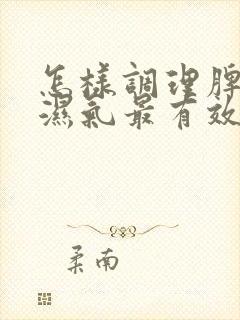 怎樣調理脾
濕氣最有效
柔南